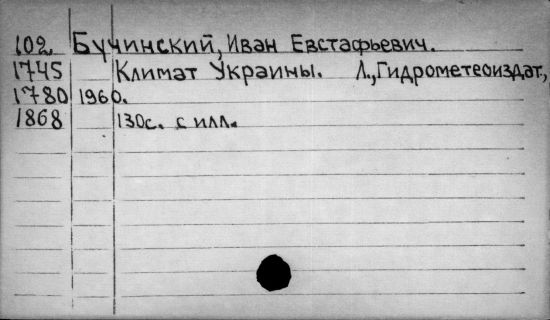 102 Бучинский, Иван Евстафьевич.
1745 Климат Украины. Л., Гидрометеоиздат,
1780 1960.
1868 130с. с илл.